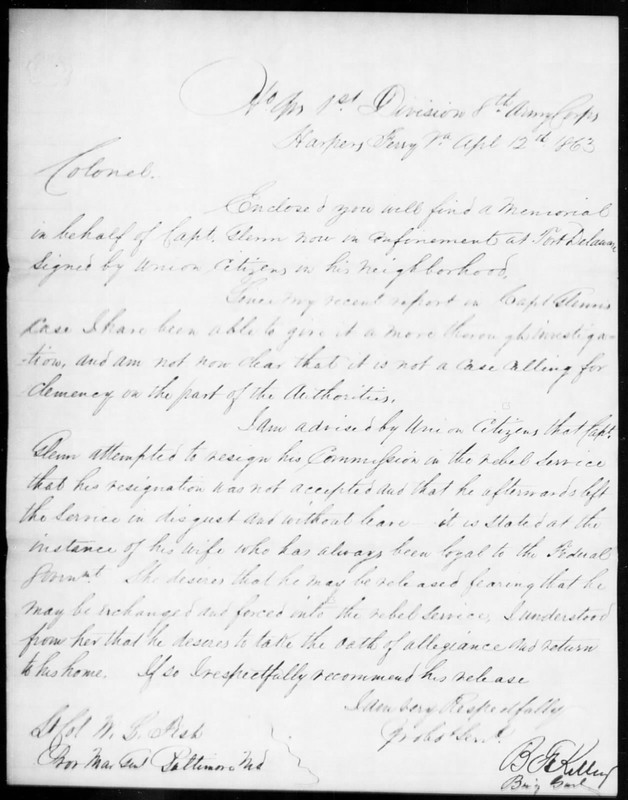 Hd Qrs 1st Division 8th Army Corps
Harpers Ferry Va Apl 12th 1863
Colonel.
Enclosed you will find a memorial
in behalf of Capt. Glenn now in confinement at Fort Delaware
signed by Union Citizens in his neighborhood.
Since my recent report in Capt Glenns
case I have been able to give it a more thorough investiga-
tion, and am not now clear that it is not a case calling for
clemency on the part of the Authorities.
I am advised by Union Citizens that Capt.
Glenn attempted to resign his Commission in the rebel service
that his resignation was not accepted and that he afterwards left
the service in disgust and without leave – it is stated at the
instance of his wife who has always been loyal to the Federal
Governmt. She desires that he may be released fearing that he
may be exchanged and forced into the rebel service, I understood
from her that he desires to take the oath of allegiance and return
to his home. If so I respectfully recommend his release
I am very Respectfully
Yr obt Servt.
Lt Col W. S. Fish
Prov Mar Genl Baltimore Md
B F Kelley
Brig Genl